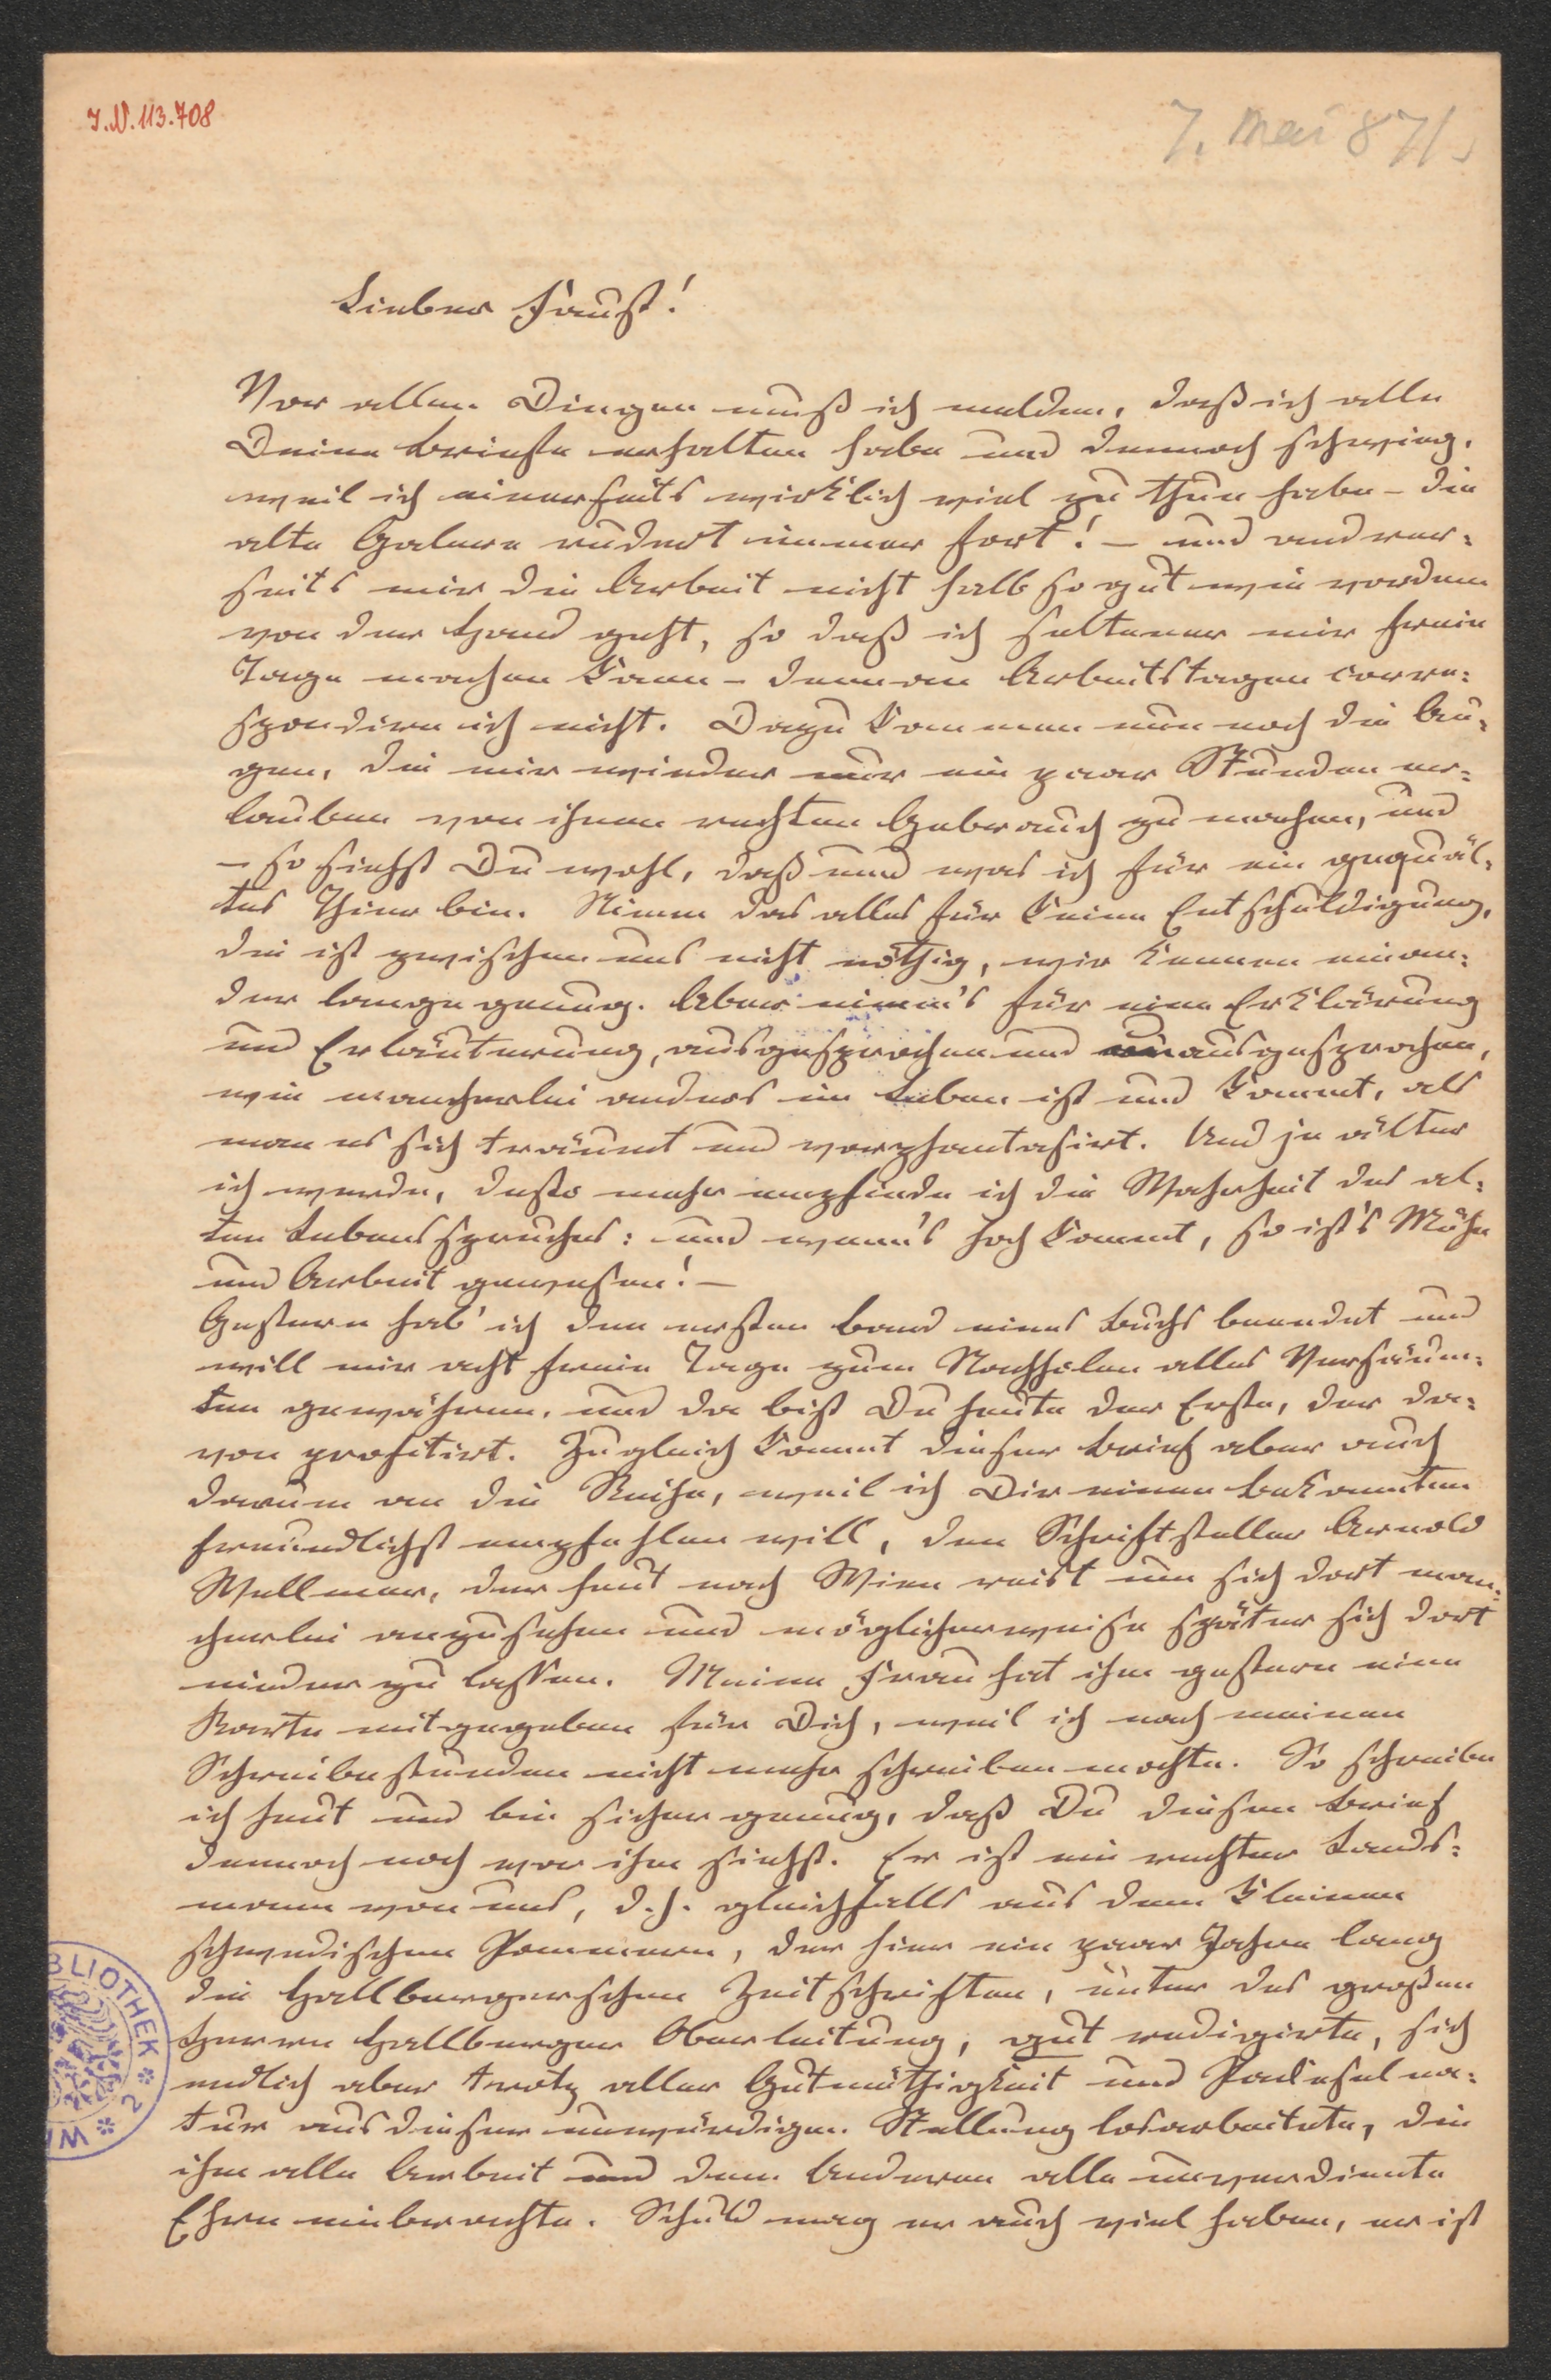 I.N. 113.708
7. Mai 871
Lieber Faust!
Vor allen Dingen muß ich melden, daß ich alle
Deine Briefe erhalten habe und dennoch schwieg,
weil ich einerseits wirklich viel zu thun habe – die
alte Galeere rudert immer fort! – und andrer-
seits mir die Arbeit nicht halb so gut wie vordem
von der Hand geht, so daß ich seltener mir freie
Tage machen kann – denn an Arbeitstagen corre-
spondire ich nicht. Dazu kommen nun noch die Au-
gen, die mir wieder nur ein paar Stunden er-
lauben von ihnen rechten Gebrauch zu machen, und
– so siehst Du wohl, daß und was ich für ein gequäl-
tes Thier bin. Nimm das alles für keine Entschuldigung,
die ist zwischen uns nicht nöthig, wir kennen einan-
der lange genug. Aber nimm's für eine Erklärung
und Erläuterung, ausgesprochen und unausgesprochen,
wie mancherlei anders im Leben ist und kommt, als
man es sich träumt und vorphantasirt. Und je älter
ich werde, desto mehr empfinde ich die Wahrheit des al-
ten Lebensspruches: und wenn's hoch kommt, so ist's Mühe
und Arbeit gewesen! –
Gestern hab' ich den ersten Band eines Buchs beendet und
will mir acht freie Tage zum Nachholen alles Versäum-
ten gewähren, und da bist Du heute der Erste, der da-
von profitirt. Zugleich kommt dieser Brief aber auch
darum an die Reihe, weil ich Dir einen Bekannten
freundlichst empfehlen will, den Schriftsteller Arnold
Wellmer, der heut nach Wien reist um sich dort man-
cherlei anzusehen und möglicherweise später sich dort
nieder zu lassen. Meine Frau hat ihm gestern eine
Karte mitgegeben für Dich, weil ich nach meinen
Schreibestunden nicht mehr schreiben mochte. So schreibe
ich heut und bin sicher genug, daß Du diesen Brief
dennoch noch vor ihm siehst. Er ist ein rechter Lands-
mann von uns, d.h. gleichfalls aus dem kleinen
schwedischen Pommern, der hier ein paar Jahre lang
die Hallbergerschen Zeitschriften, unter des großen
Herren Hallberger Oberleitung, gut redigirte, sich
endlich aber trotz aller Gutmüthigkeit und Packeselna-
tur aus dieser unwürdigen Stellung losarbeitete, die
ihm alle Arbeit und dem Anderen alle unverdiente
Ehre einbrachte. Schuld mag er auch viel haben, er ist
BLIOTHEK * 2 * WI